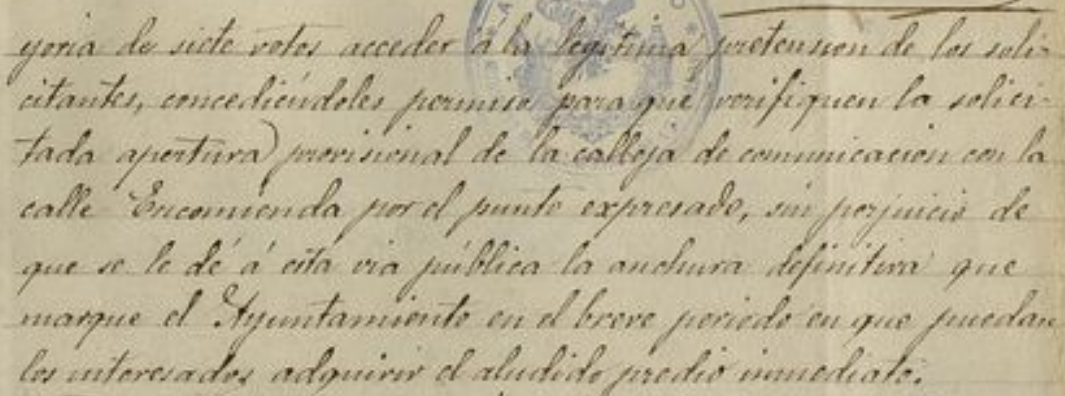 yoria de siete votos acceder á la legítima pretension de los soli-
citantes, concediéndoles permiso para que verifiquen la solici-
tada apertura provisional de la calleja de comunicacion con la
calle Encomienda por el punto expresado, sin perjuicio de
que se le dé á esta via pública la anchura definitiva que
marque el Ayuntamiento en el breve periodo en que puedan
los interesados adquirir el aludido predio inmediato.